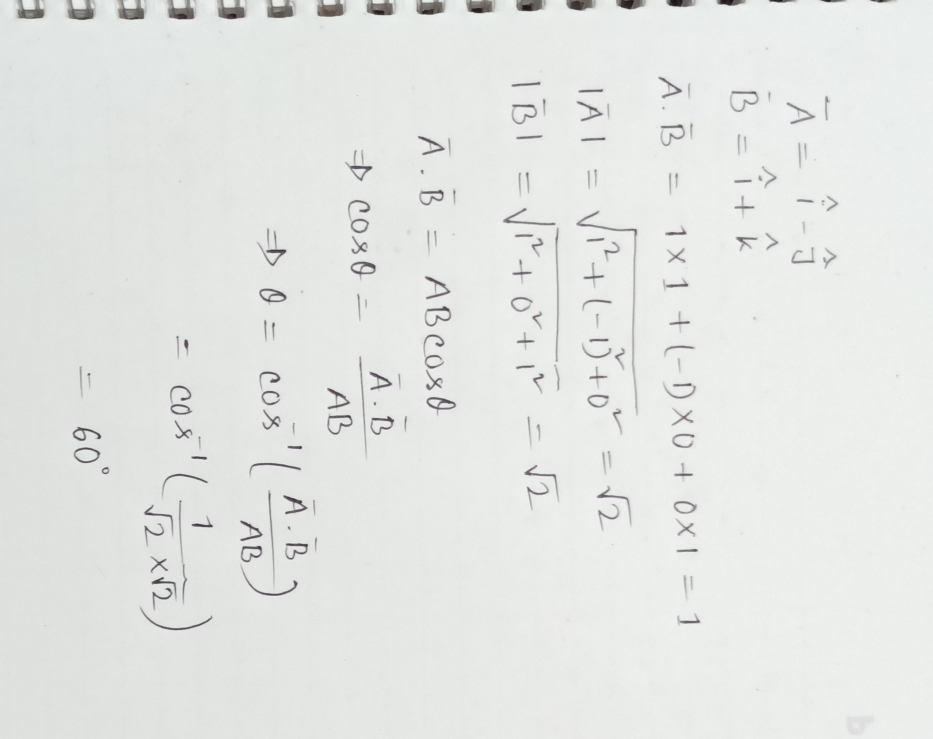 A̅ = î - ĵ
B̅ = î + k̂
A̅ . B̅ = 1 × 1 + (-1) × 0 + 0 × 1 = 1
|A̅| = √(1² + (-1)² + 0²) = √2
|B̅| = √(1² + 0² + 1²) = √2
A̅ . B̅ = AB cosθ
⇒ cosθ = A̅ . B̅ / AB
⇒ θ = cos⁻¹ ( A̅ . B̅ / AB )
= cos⁻¹ ( 1 / √2 × √2 )
= 60°